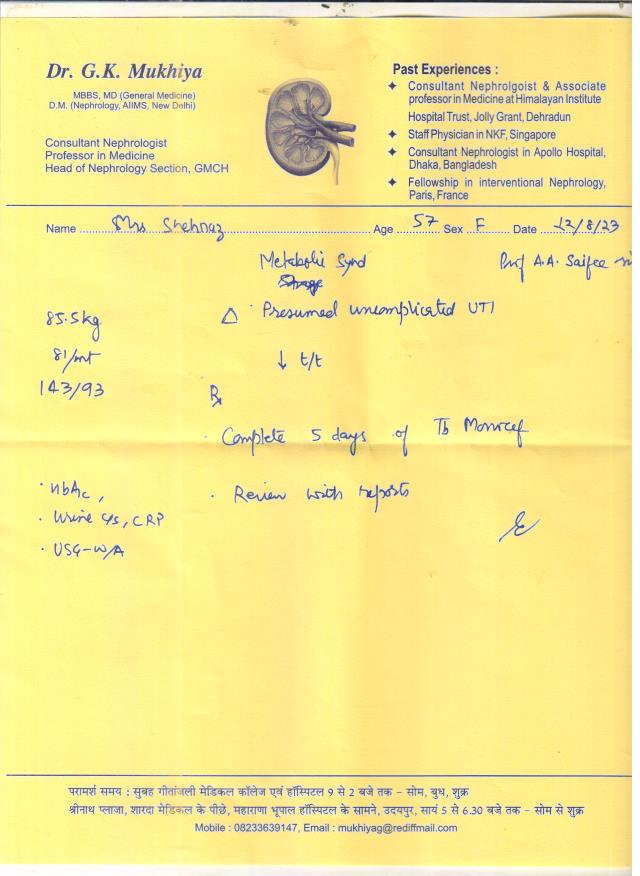 Dr. G.K. Mukhiya
MBBS, MD (General Medicine)
D.M. (Nephrology, AIIMS, New Delhi)
Consultant Nephrologist
Professor in Medicine
Head of Nephrology Section, GMCH
Past Experiences :
✦ Consultant Nephrolgoist & Associate
professor in Medicine at Himalayan Institute
Hospital Trust, Jolly Grant, Dehradun
✦ Staff Physician in NKF, Singapore
✦ Consultant Nephrologist in Apollo Hospital,
Dhaka, Bangladesh
✦ Fellowship in interventional Nephrology,
Paris, France
Name Mrs Shehnaz Age 57 Sex F Date 12/8/23
Metabolic Synd
Prof A.A. Saifee
85.5kg
81/mt
143/93
△ · Presumed uncomplicated UTI
↓ t/t
Rx
· Complete 5 days of Tb Monocef
· Review with reports
· HbA1c,
· Urine c/s, CRP
· USG-W/A
परामर्श समय : सुबह गीतांजली मेडिकल कॉलेज एवं हॉस्पिटल 9 से 2 बजे तक – सोम, बुध, शुक्र
श्रीनाथ प्लाजा, शारदा मेडिकल के पीछे, महाराणा भूपाल हॉस्पिटल के सामने, उदयपुर, सायं 5 से 6.30 बजे तक – सोम से शुक्र
Mobile : 08233639147, Email : mukhiyag@rediffmail.com